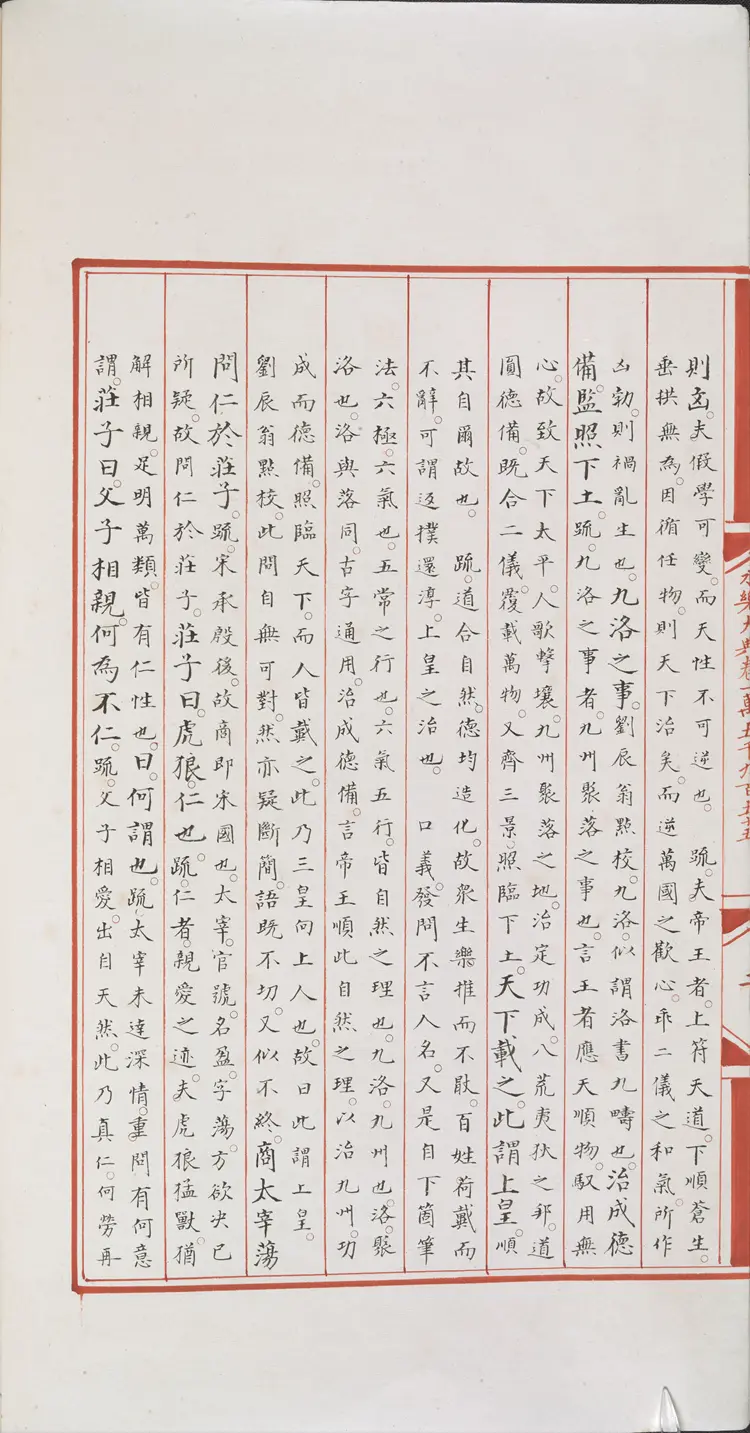 永樂大典卷一萬五千九百五十五
則㐫。夫假學可變。而天性不可逆也。 䟽。夫帝王者。上符天道。下順蒼生。
垂拱無為。因循任物。則天下治矣。而逆萬國之歡心。乖二儀之和氣。所作
凶勃。則禍亂生也。九洛之事。劉辰翁㸃校。九洛。似謂洛書九疇也。治成德
備。監照下土。䟽。九洛之事者。九州聚落之事也。言王者應天順物。馭用無
心。故致天下太平。人歌擊壤。九州聚落之地。治定功成。八荒夷狄之邦。道
圓德備。既合二儀。覆載萬物。又齊三景。照臨下土。天下載之。此謂上皇。順
其自爾故也。 䟽。道合自然。德均造化。故衆生樂推而不厭。百姓荷戴而
不辭。可謂返撲還淳。上皇之治也。 口義。發問不言人名。又是自下箇筆
法。六極。六氣也。五常之行也。六氣五行。皆自然之理也。九洛。九州也。洛。聚
洛也。洛與落同。古字通用。治成德備。言帝王順此自然之理。以治九州。功
成而德備。照臨天下。而人皆戴之。此乃三皇向上人也。故曰此謂上皇。
劉辰翁㸃校。此問自無可對。然亦疑斷簡。語既不切。又似不終。商太宰蕩
問仁於莊子。䟽。宋承殷後。故商即宋國也。太宰。官號。名盈字蕩。方欲决已
所疑。故問仁於莊子。莊子曰。虎狼。仁也。䟽。仁者。親愛之迹。夫虎狼猛獸。猶
解相親。足明萬類。皆有仁性也。曰。何謂也。䟽。太宰未達深情。重問有何意
謂。莊子曰。父子相親。何為不仁。䟽。父子相愛。出自天然。此乃真仁。何勞再